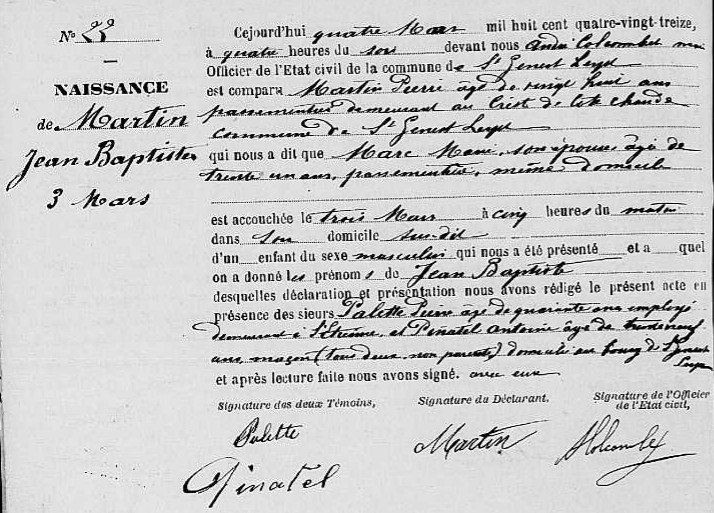 N° 22
NAISSANCE
de Martin
Jean Baptiste
3 Mars
Cejourd'hui quatre Mars mil huit cent quatre-vingt-treize,
à quatre heures du soir devant nous André Colcombet
Officier de l'Etat civil de la commune de St Genest Lerpt
est comparu Martin Pierre âgé de vingt huit ans
passementier demeurant au Crêt de tête chaude
commune de St Genest Lerpt
qui nous a dit que Marc Marie, son épouse âgée de
trente un ans, passementière, même domicile
est accouchée le trois Mars à cinq heures du matin
dans son domicile sus-dit
d'un enfant du sexe masculin qui nous a été présenté et a quel
on a donné les prénoms de Jean Baptiste
desquelles déclaration et présentation nous avons rédigé le présent acte en
présence des sieurs Palette Pierre âgé de quarante ans employé
demeurant à St Etienne et Pinatel Antoine âgé de
ans, maçon (tous deux non parents) domicilié au bourg de St Genest
Lerpt
et après lecture faite nous avons signé. avec eux
Signature des deux Témoins,
Signature du Déclarant,
Signature de l'Officier
de l'Etat civil,
Palette
Martin
Pinatel